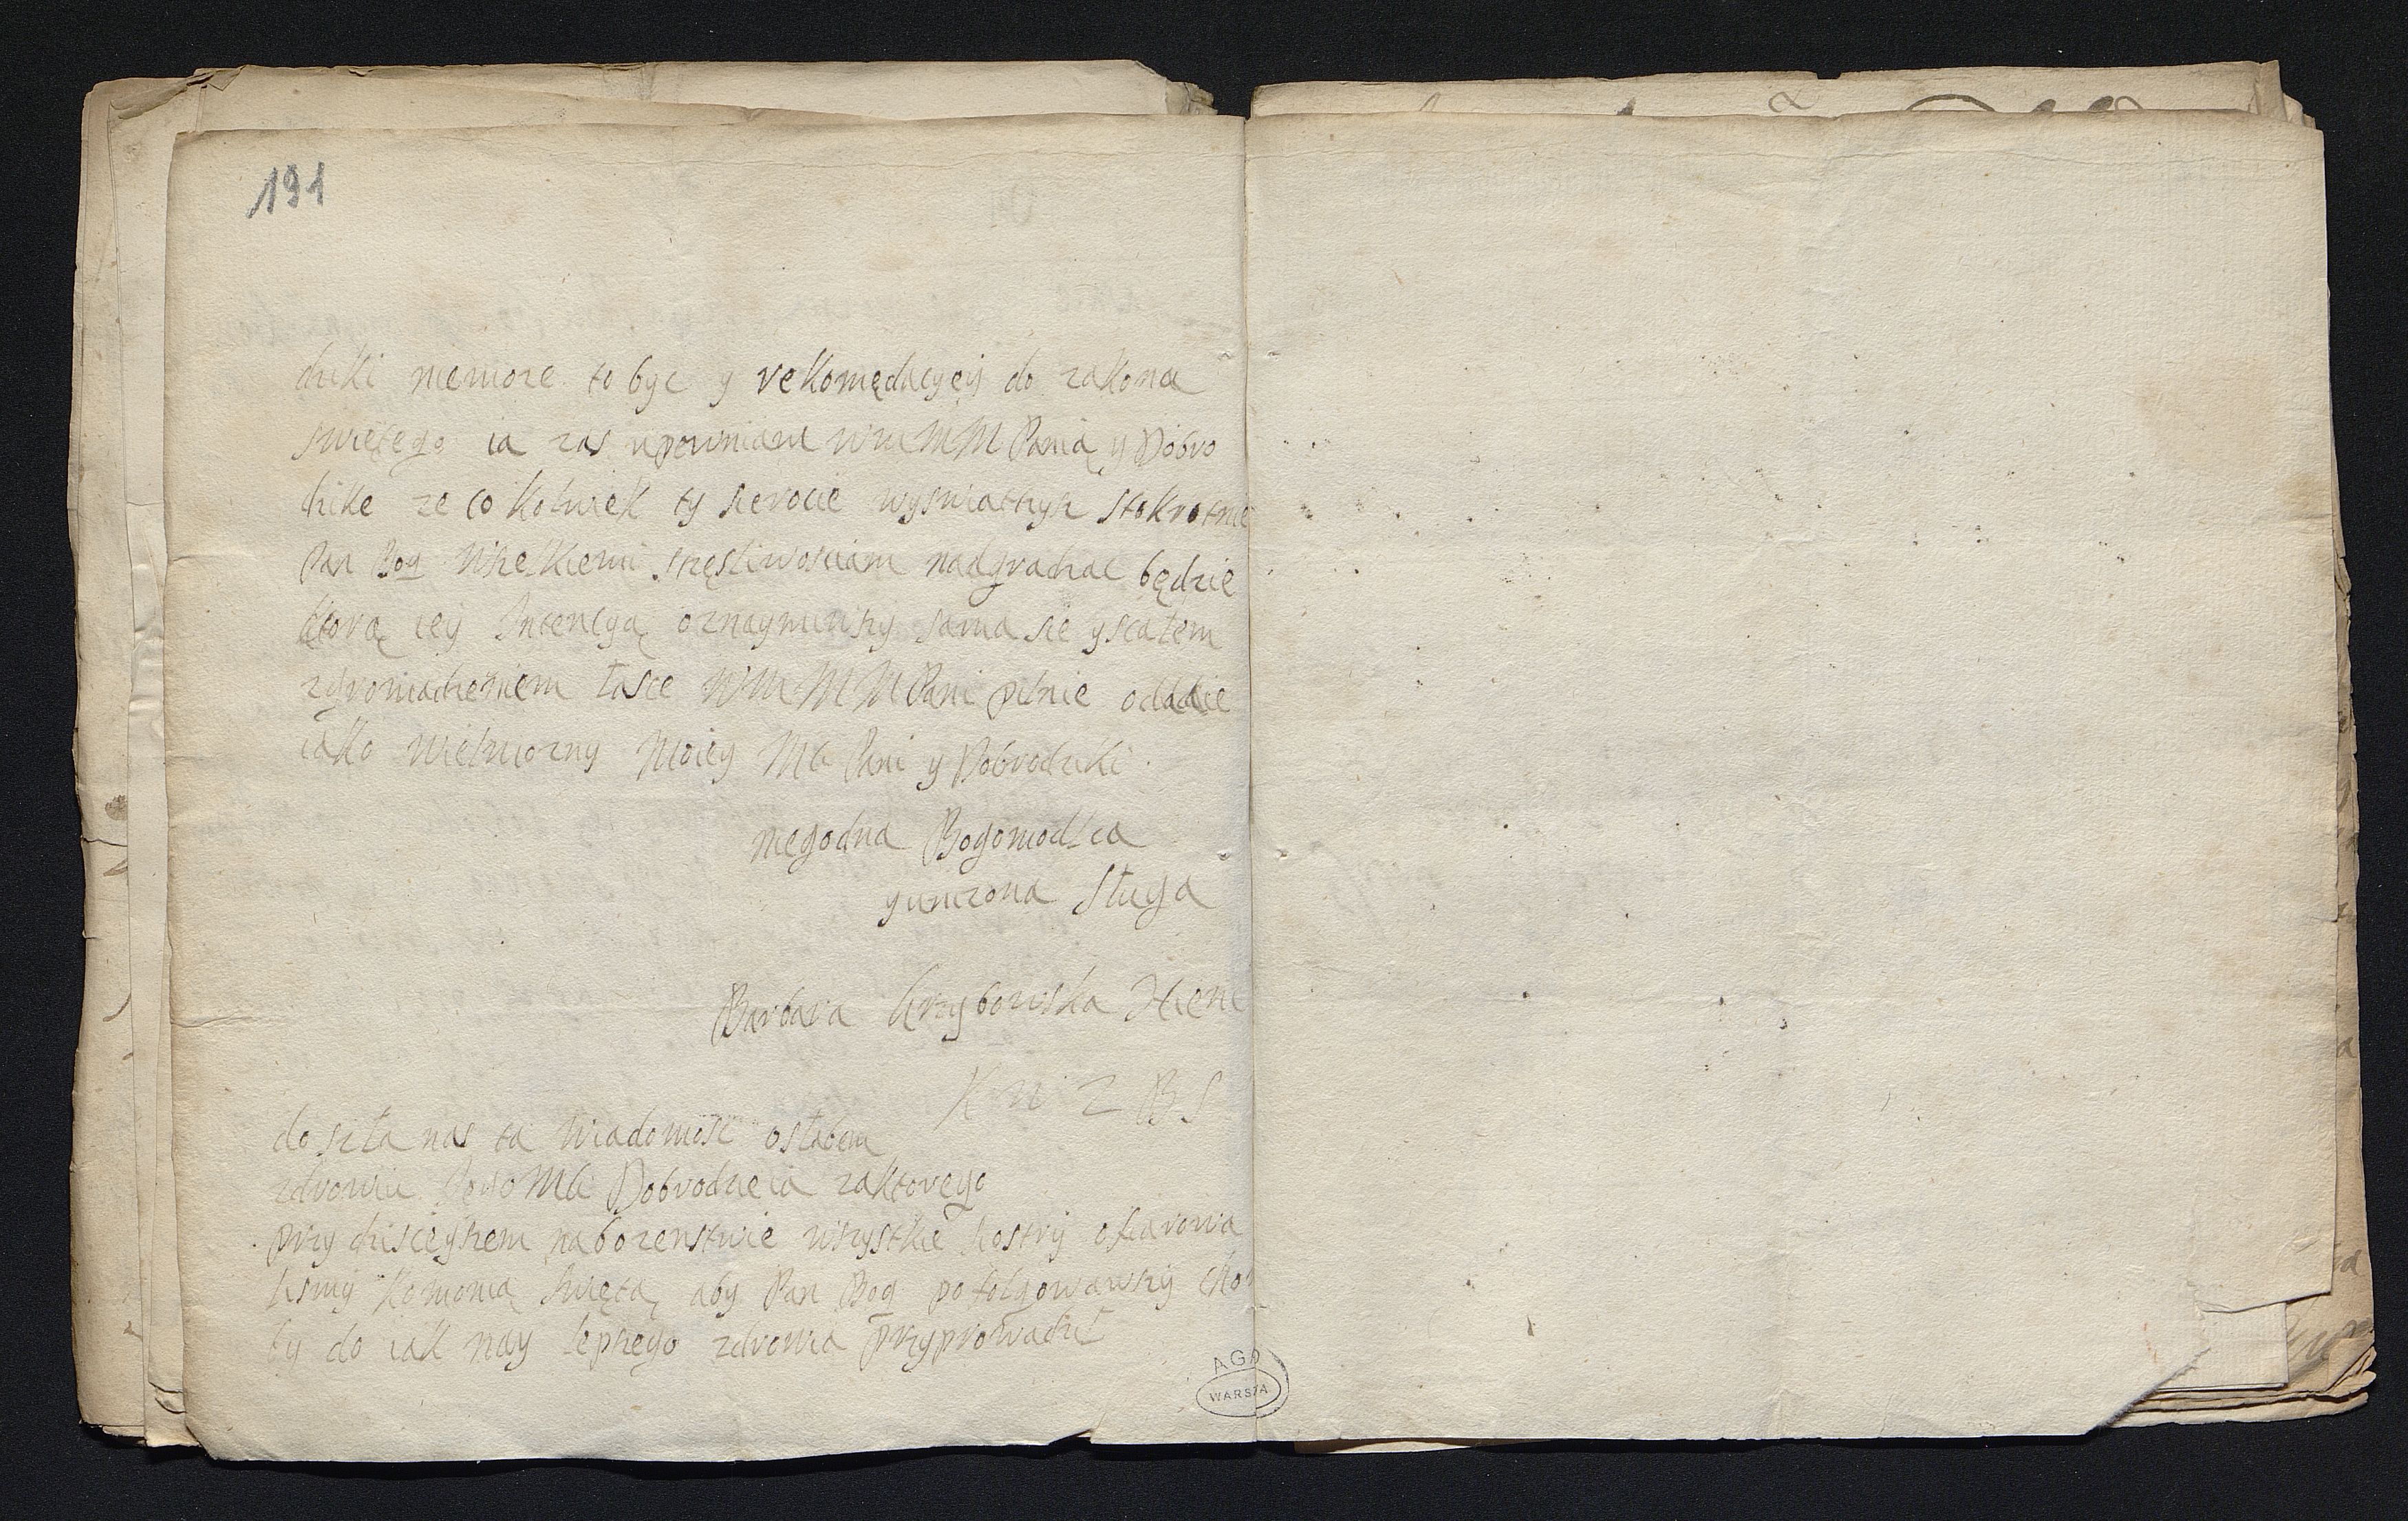 191
dzki niemoze to byc y rekomędacyey do zakona
swiętego ia zas upewniam WmMM Panią y Dobro
dzike ze co kolwiek ty sierocie wyswiatczysz stokrotnie
Pan Bog wszelkiemi szczęsliwosciam nadgradzac będzie
ktorą iey Intencyą oznaymiwszy sama sie yscałem
zgromadzeniem łasce WM MM Pani pilnie oddaie
iako Wielmozny Moiey Mci Pani y Dobrodzki
niegodna Bogomodlca
yunizona Sługa
Barbara Grzybowska
K N Z B S
doszła nas ta wiadomosc osłabem
zdrowiu Mci Dobrodzieia zaktorego
przy dzisieyszem nabozenstwie wszystkie siostry ofiarowa
lismy Komonią swiętą aby Pan Bog pofolgowawszy
by do iak nay lepszego zdrowia przyprowadzic
AGA
WARSZA